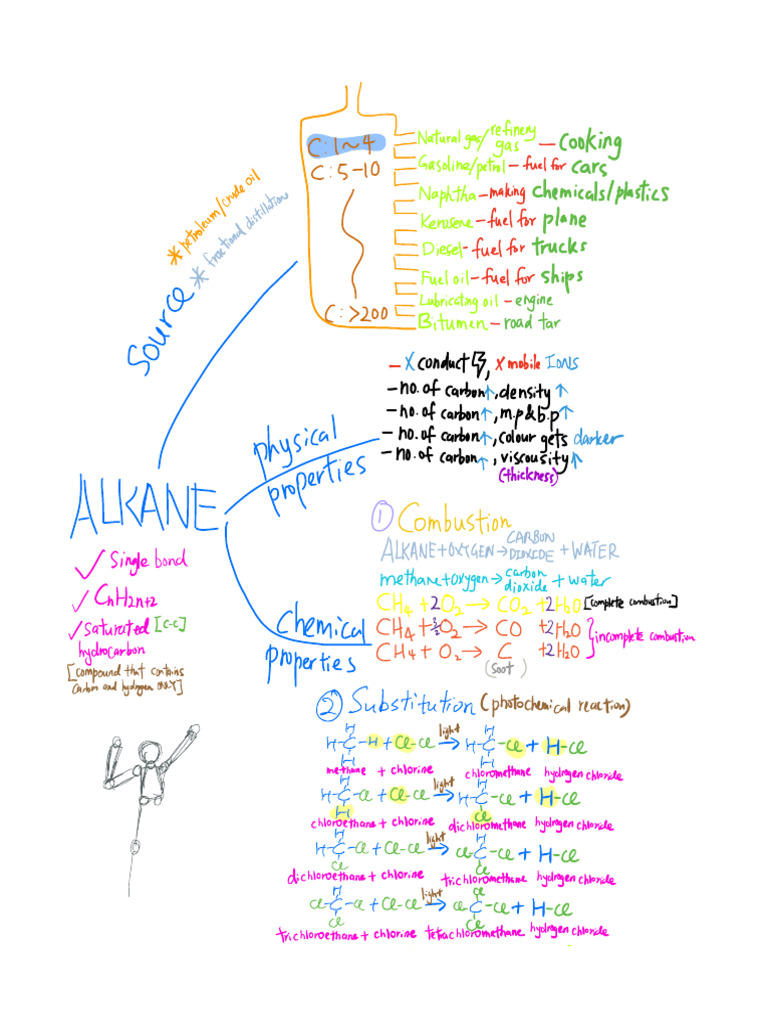 C: 1 ~ 4
C: 5-10
C: >200
Natural gas/refinery gas — cooking
Gasoline/petrol - fuel for cars
Naphtha - making chemicals/plastics
Kerosene - fuel for plane
Diesel - fuel for trucks
Fuel oil - fuel for ships
Lubricating oil - engine
Bitumen - road tar
Source
* petroleum/crude oil
* fractional distillation
physical properties
- X conduct, X mobile IONS
- no. of carbon ↑, density ↑
- no. of carbon ↑, m.p & b.p ↑
- no. of carbon ↑, colour gets darker
- no. of carbon ↑, viscousity ↑
(thickness)
ALKANE
✓ Single bond
✓ CnH2n+2
✓ saturated [C-C]
hydrocarbon
[compound that contains
carbon and hydrogen ONLY]
Chemical properties
① Combustion
ALKANE + OXYGEN → CARBON DIOXIDE + WATER
methane + oxygen → carbon dioxide + water
CH4 + 2O2 → CO2 + 2H2O [complete combustion]
CH4 + 3/2 O2 → CO + 2H2O
CH4 + O2 → C + 2H2O
} incomplete combustion
(soot)
② Substitution (photochemical reaction)
H
H-C-H + Cl-Cl light → H-C-Cl + H-Cl
H
methane + chlorine chloromethane hydrogen chloride
H
H-C-Cl + Cl-Cl light → H-C-Cl + H-Cl
H Cl
chloroethane + chlorine dichloromethane hydrogen chloride
H
H-C-Cl + Cl-Cl light → Cl-C-Cl + H-Cl
Cl Cl
dichloroethane + chlorine trichloromethane hydrogen chloride
H Cl
Cl-C-Cl + Cl-Cl light → Cl-C-Cl + H-Cl
Cl Cl
trichloroethane + chlorine tetrachloromethane hydrogen chloride